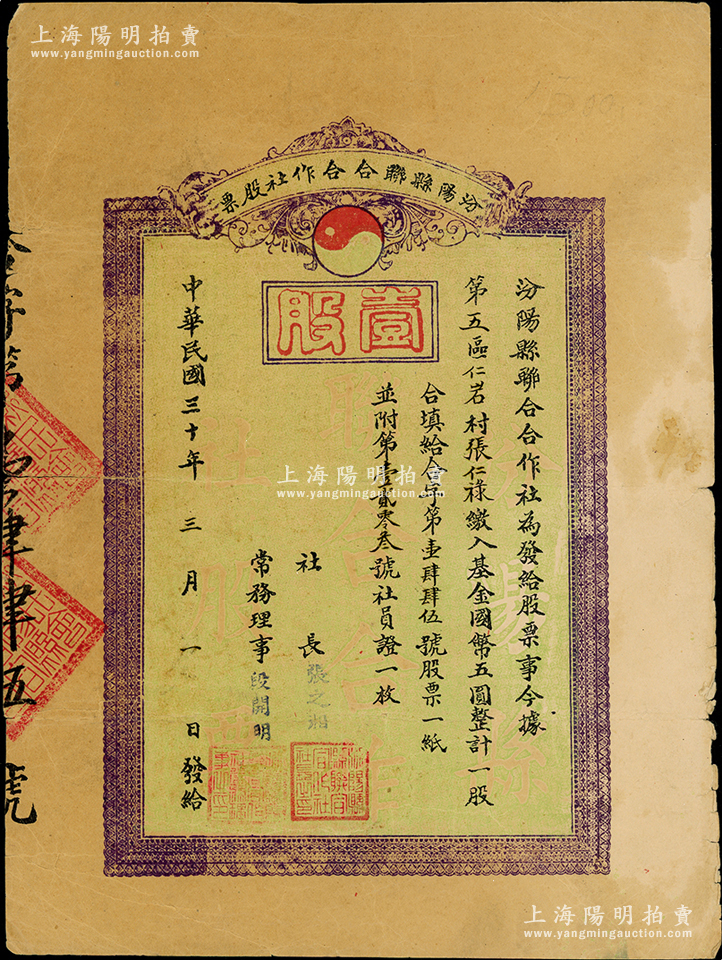 上海陽明拍賣
www.yangmingauction.com
汾陽縣聯合合作社股票
壹股
汾陽縣聯合合作社為發給股票事今據
第五區仁岩村張仁祿繳入基金國幣五圓整計一股
合填給合字第壹肆肆伍號股票一紙
並附第壹貳零叁號社員證一枚
社長張之
常務理事段開明
中華民國三十年三月一日發給
合字第壹肆肆伍號
上海陽明拍賣
www.yangmingauction.com
上海陽明拍賣
www.yangmingauction.com